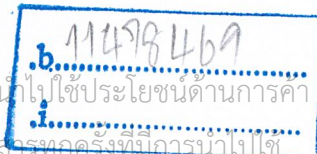 .b 11498469
นำไปใช้ประโยชน์ด้านการค้า
.i
ทุกครั้งที่มีการนำไปใช้